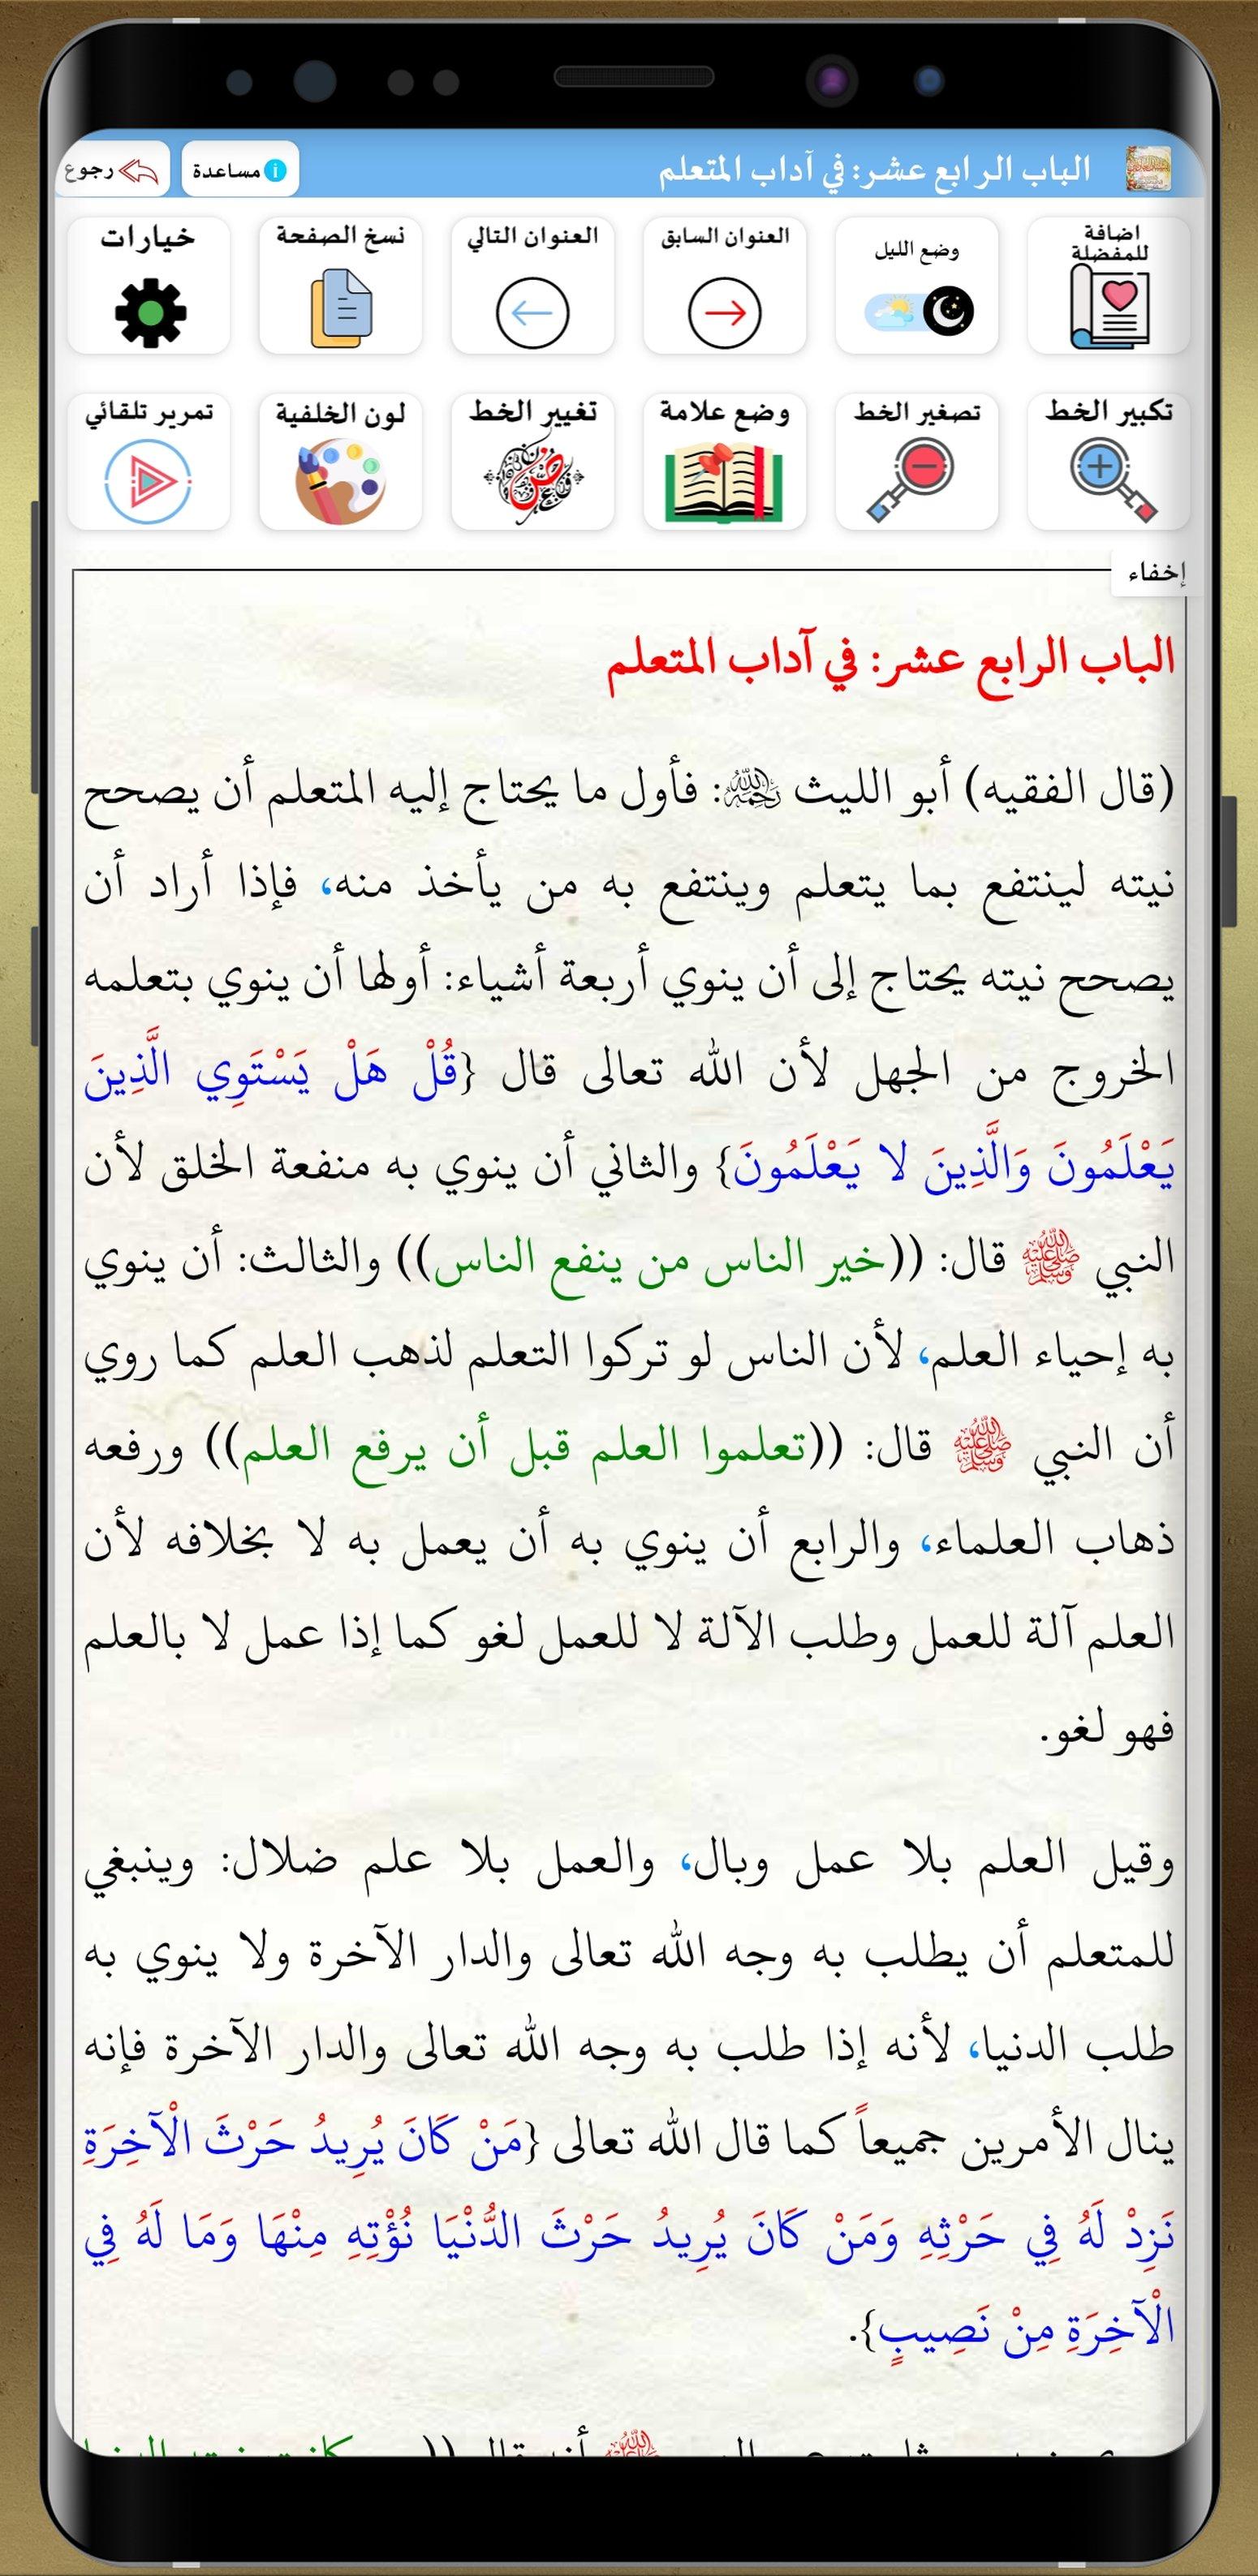 الباب الرابع عشر: في آداب المتعلم
مساعدة
رجوع
اضافة
للمفضلة
وضع الليل
العنوان السابق
العنوان التالي
نسخ الصفحة
خيارات
تكبير الخط
تصغير الخط
وضع علامة
تغيير الخط
لون الخلفية
تمرير تلقائي
إخفاء
الباب الرابع عشر: في آداب المتعلم
(قال الفقيه) أبو الليث رحمه الله: فأول ما يحتاج إليه المتعلم أن يصحح
نيته لينتفع بما يتعلم وينتفع به من يأخذ منه، فإذا أراد أن
يصحح نيته يحتاج إلى أن ينوي أربعة أشياء: أولها أن ينوي بتعلمه
الخروج من الجهل لأن الله تعالى قال {قُلْ هَلْ يَسْتَوِي الَّذِينَ
يَعْلَمُونَ وَالَّذِينَ لا يَعْلَمُونَ} والثاني أن ينوي به منفعة الخلق لأن
النبي ﷺ قال: ((خير الناس من ينفع الناس)) والثالث: أن ينوي
به إحياء العلم، لأن الناس لو تركوا التعلم لذهب العلم كما روي
أن النبي ﷺ قال: ((تعلموا العلم قبل أن يرفع العلم)) ورفعه
ذهاب العلماء، والرابع أن ينوي به أن يعمل به لا بخلافه لأن
العلم آلة للعمل وطلب الآلة لا للعمل لغو كما إذا عمل لا بالعلم
فهو لغو.
وقيل العلم بلا عمل وبال، والعمل بلا علم ضلال: وينبغي
للمتعلم أن يطلب به وجه الله تعالى والدار الآخرة ولا ينوي به
طلب الدنيا، لأنه إذا طلب به وجه الله تعالى والدار الآخرة فإنه
ينال الأمرين جميعاً كما قال الله تعالى {مَنْ كَانَ يُرِيدُ حَرْثَ الْآخِرَةِ
نَزِدْ لَهُ فِي حَرْثِهِ وَمَنْ كَانَ يُرِيدُ حَرْثَ الدُّنْيَا نُؤْتِهِ مِنْهَا وَمَا لَهُ فِي
الْآخِرَةِ مِنْ نَصِيبٍ}.